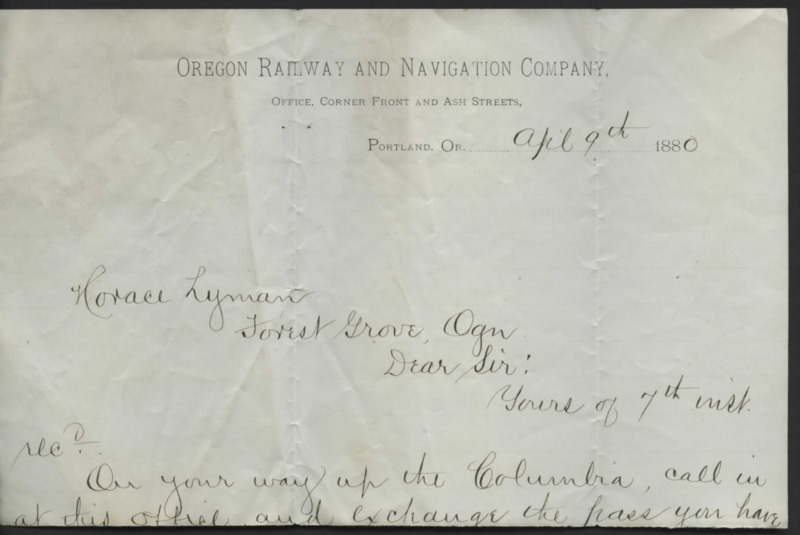 OREGON RAILWAY AND NAVIGATION COMPANY,
OFFICE, CORNER FRONT AND ASH STREETS,
PORTLAND, OR. Apl 9th 1880
Horace Lyman
Forest Grove, Ogn
Dear Sir:
Yours of 7th inst.
recd.
On your way up the Columbia, call in
at this office and exchange the pass you have